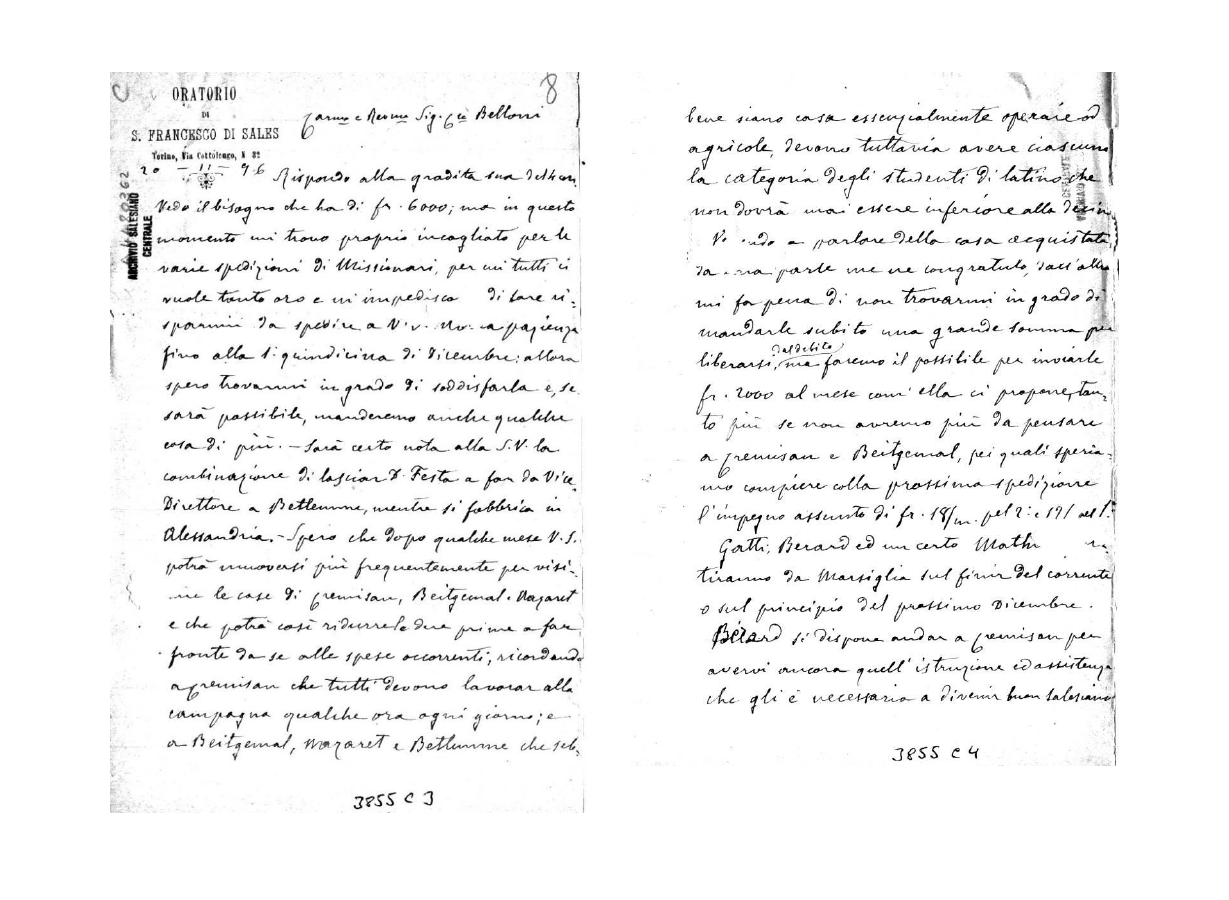 8
ORATORIO
DI
S. FRANCESCO DI SALES
Torino, Via Cottolengo, N 32
20 - 11 - 96
ARCHIVIO SALESIANO
CENTRALE
Carmo e Revmo Sig. Belloni
Rispondo alla gradita sua
Vedo il bisogno che ha di fr. 6000; ma in questo
momento mi trovo proprio incagliato per le
varie spedizioni di Missionari, per cui tutti ci
vuole tanto oro e m'impedisco di fare ri-
sparmi da spedire a pazienza
fino alla 1a quindicina di Dicembre: allora
spero trovarmi in grado di soddisfarla e, se
sarà possibile, manderemo anche qualche
cosa di più. - Sarà certo nota alla S. V. la
combinazione di lasciar D. Festa a far da Vice
Direttore a Betlemme, mentre si fabbrica in
Alessandria. - Spero che dopo qualche mese V. S.
potrà muoversi più frequentemente per visi-
le case di Cremisan, Beitgemal, Nazaret
e che potrà così ridurre le due prime a far
fronte da se alle spese occorrenti, ricordando
a Cremisan che tutti devono lavorar alla
campagna qualche ora ogni giorno; e
a Beitgemal, Nazaret e Betlemme che seb-
3855 C 3
bene siano casa essenzialmente operaie od
agricole, devono tuttavia avere ciascuna
la categoria degli studenti di latino che
non dovrà mai essere inferiore alla decina
a parlare della casa acquistata,
da una parte me ne congratulo, dall'altra
mi fa pena di non trovarmi in grado di
mandarle subito una grande somma per
liberarsi, dal debito ma faremo il possibile per inviarle
fr. 2000 al mese com' ella ci propone, tan-
to più se non avremo più da pensare
a Cremisan e Beitgemal, pei quali speria-
mo compiere colla prossima spedizione
l'impegno assunto di fr. 18/m. pel 2o: e 19/ pel 1o
Gatti, Berard ed un certo
tiranno da Marsiglia sul finir del corrente
o sul principio del prossimo Dicembre.
Bérard si dispone andar a Cremisan per
avervi ancora quell' istruzione ed assistenza
che gli è necessaria a divenir buon Salesiano
3855 C 4